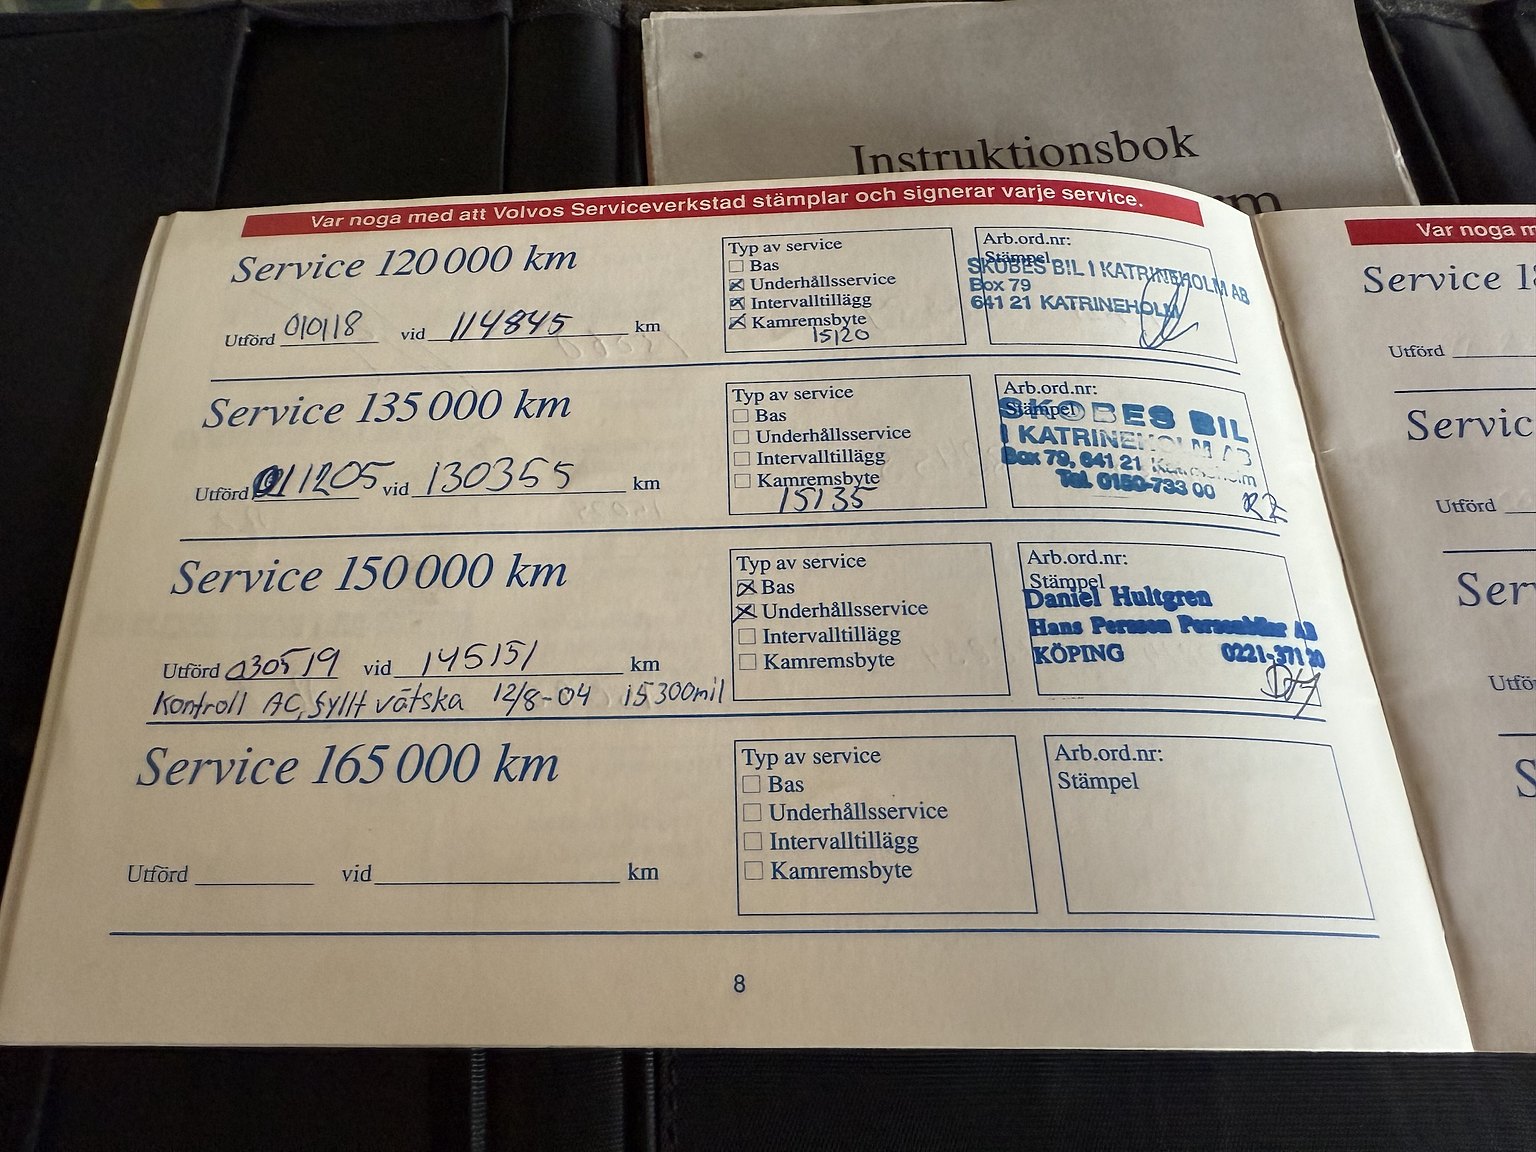 Instruktionsbok
Var noga med att Volvos Serviceverkstad stämplar och signerar varje service.
Service 120 000 km
Utförd 010118 vid 114845 km
Typ av service
Bas
Underhållsservice
Intervalltillägg
Kamremsbyte
15120
Arb.ord.nr:
Stämpel
SKOBES BIL I KATRINEHOLM AB
Box 79
641 21 KATRINEHOLM
Service 135 000 km
Utförd 011205 vid 130355 km
Typ av service
Bas
Underhållsservice
Intervalltillägg
Kamremsbyte
15135
Arb.ord.nr:
Stämpel
SKOBES BIL
I KATRINEHOLM AB
Box 79, 641 21 Katrineholm
Tel. 0150-733 00
Service 150 000 km
Utförd 030519 vid 145151 km
Kontroll AC, fyllt vätska 12/8-04 15300mil
Typ av service
Bas
Underhållsservice
Intervalltillägg
Kamremsbyte
Arb.ord.nr:
Stämpel
Daniel Hultgren
Hans Persson Personbilar AB
KÖPING 0221-371 20
Service 165 000 km
Utförd vid km
Typ av service
Bas
Underhållsservice
Intervalltillägg
Kamremsbyte
Arb.ord.nr:
Stämpel
8
Var noga
Service
Utförd
Utförd